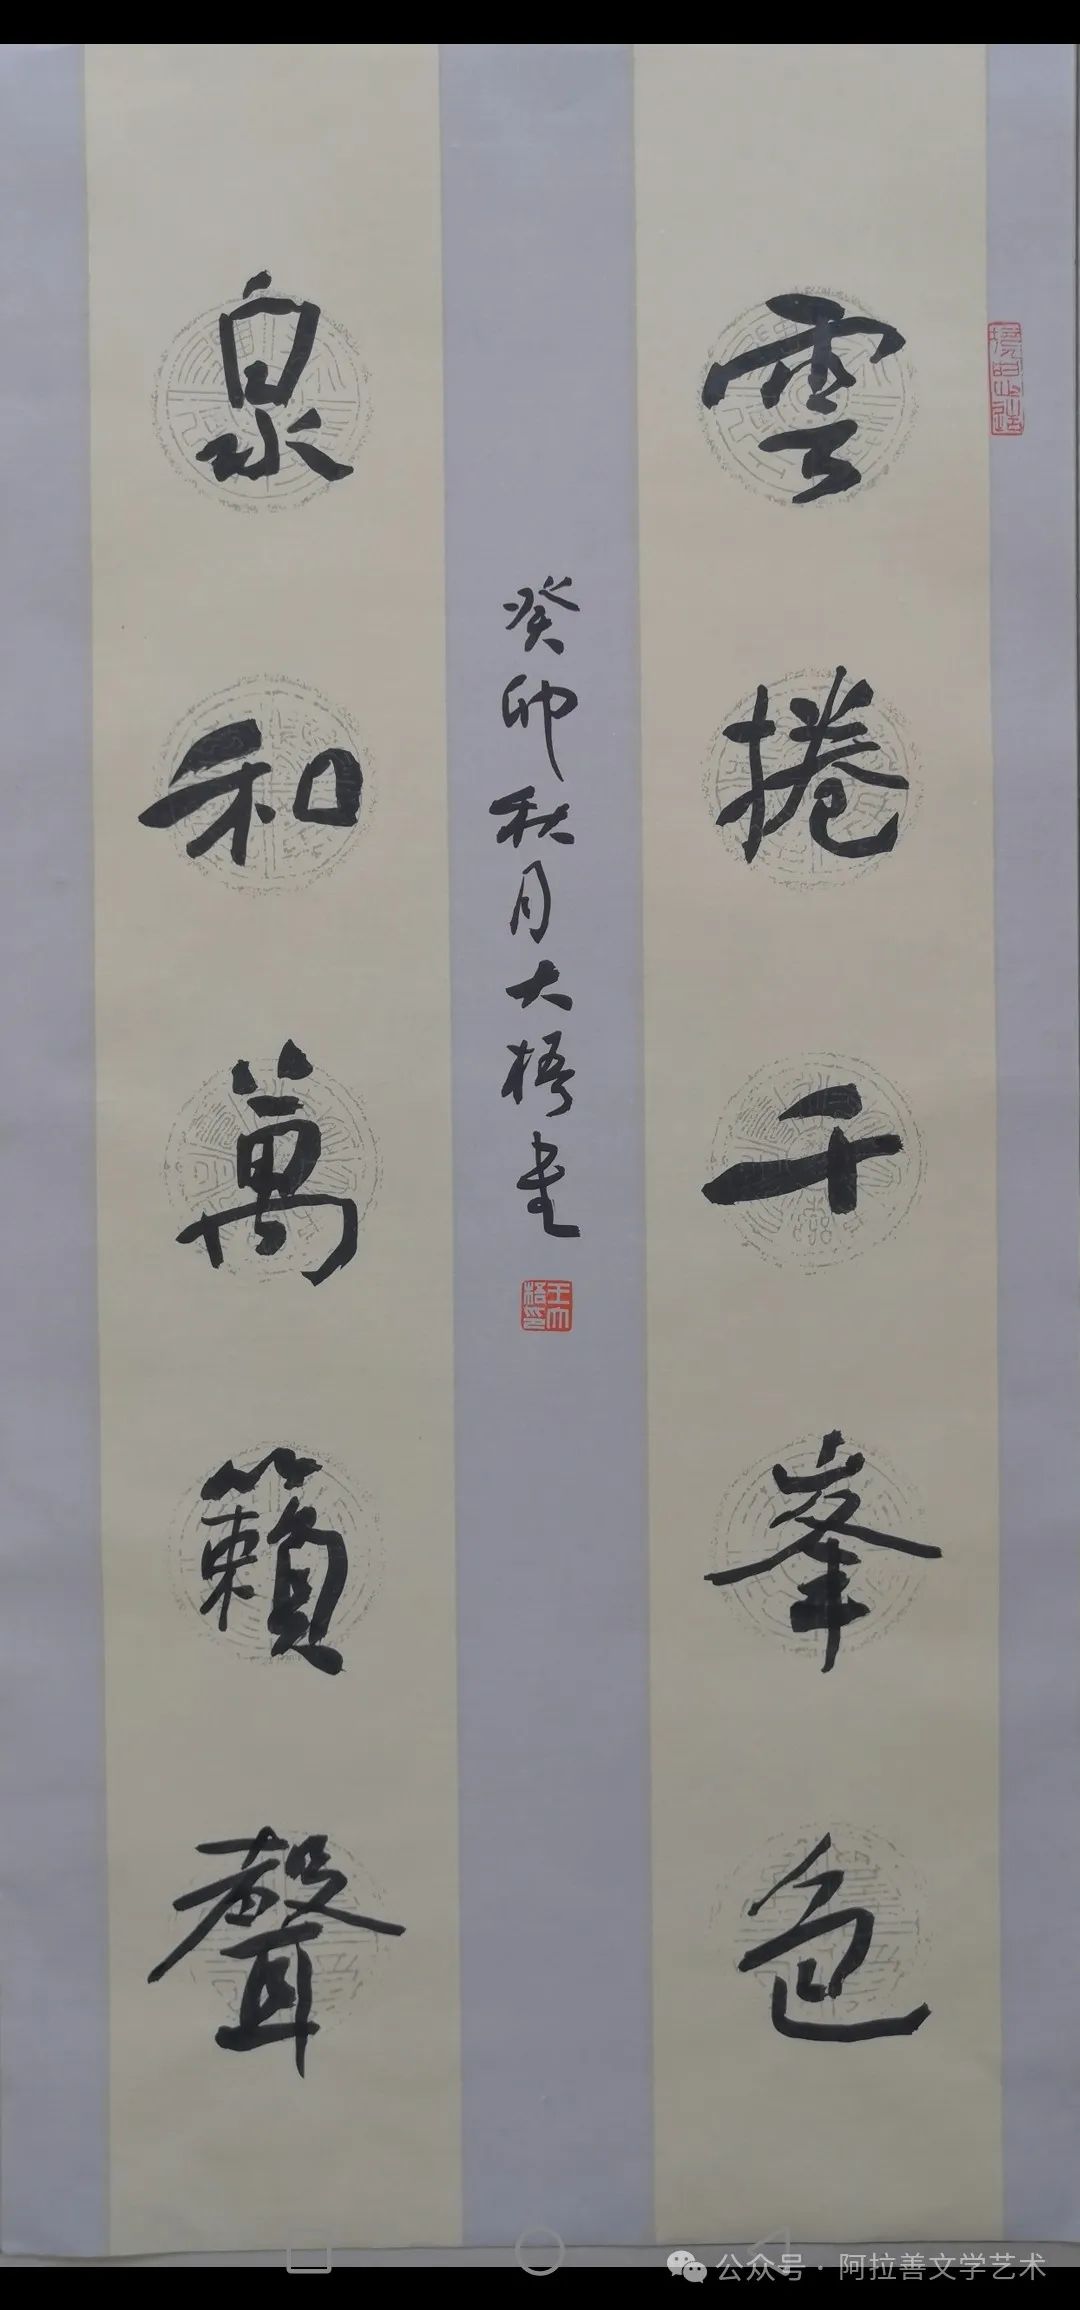 雲捲千峯色
泉和萬籟聲
癸卯秋月大梧書
王大梧印
公众号·阿拉善文学艺术